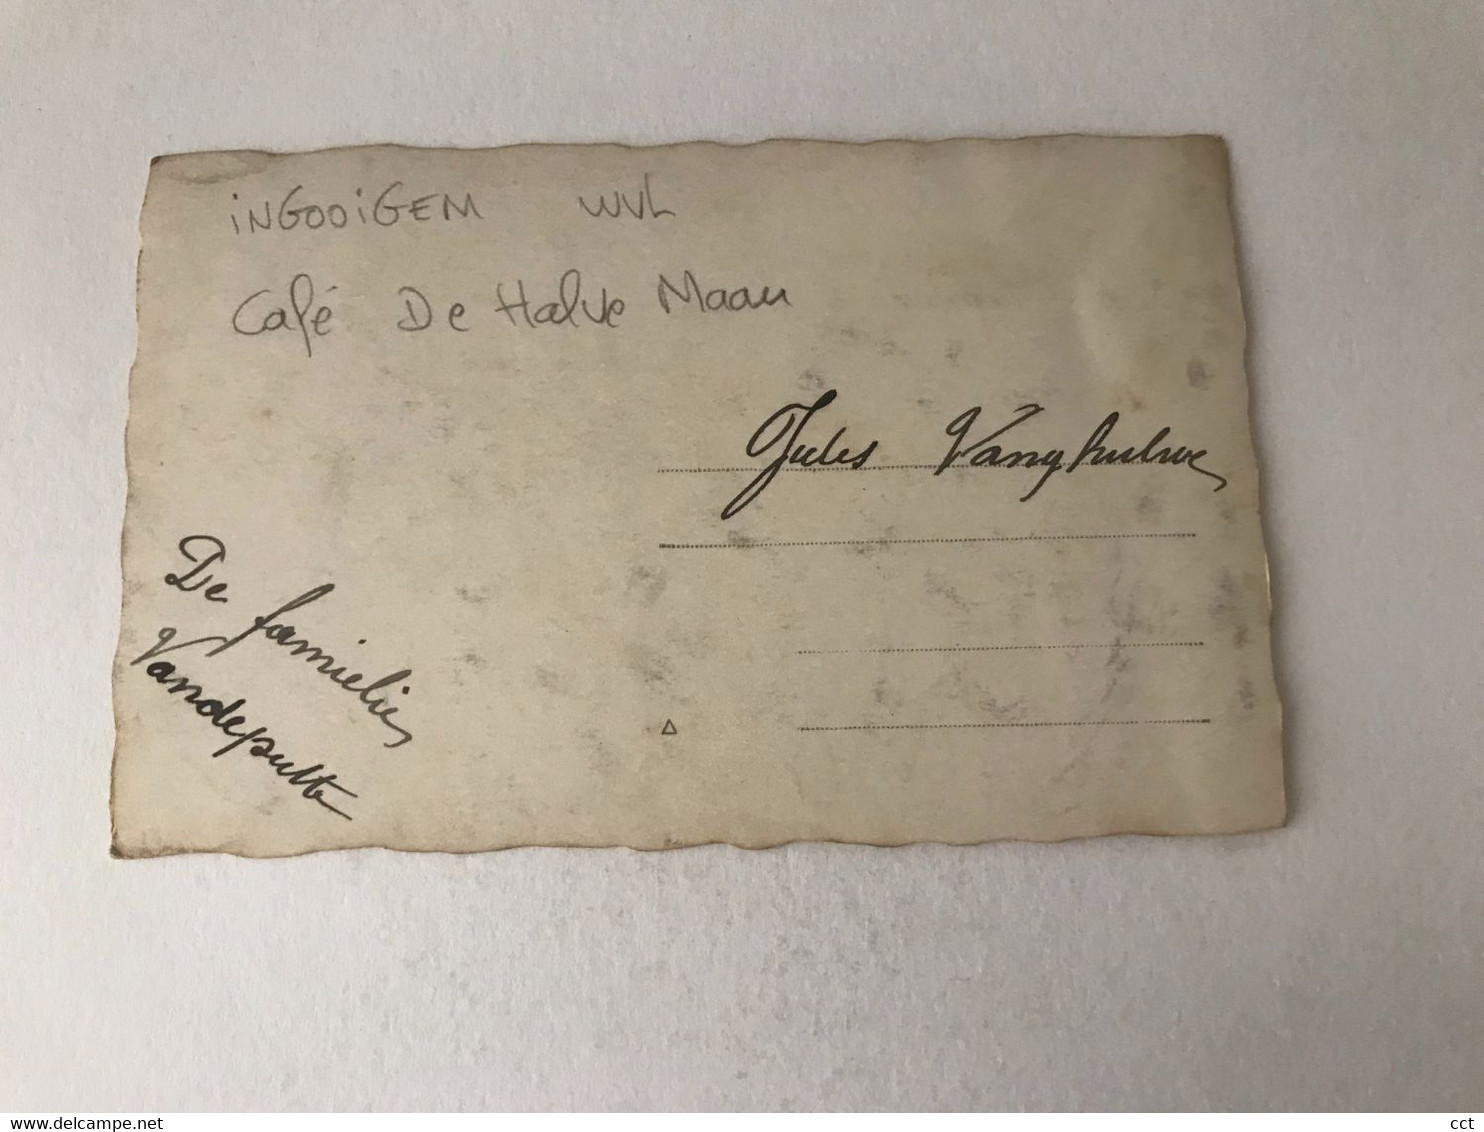 iNGOOiGEM WVL
Café De Halve Maan
Jules Vanghuluwe
De familie
Vandeputte
www.delcampe.net
cct